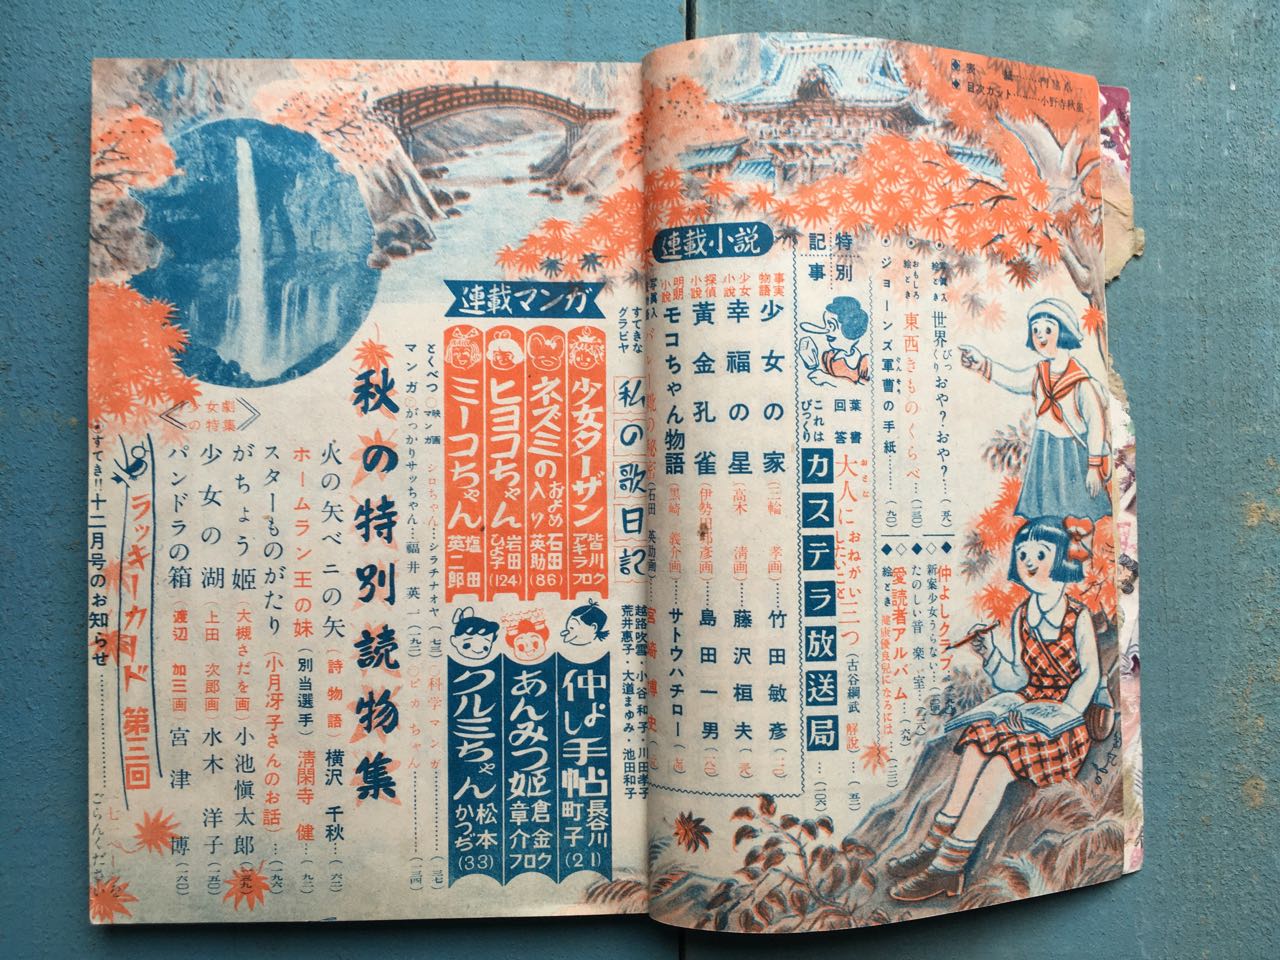 ◆表 絵
◆目次カット……小野寺秋風
世界びっくりおや？おや？
おもしろ絵とき 東西きものくらべ…(一三〇)
・ジョーンズ軍曹の手紙……(九〇)
◆仲よしクラブ
◇新案少女うらない
◆たのしい音楽室
◇愛読者アルバム…(六九)
◆絵とき 健康優良児になるには
特別記事
大人におねがいしたいこと三つ (古谷綱武 解説)
葉書回答 これはびっくり
カステラ放送局
連載小説
事実物語 少女の家 (三輪 孝画) 竹田敏彦
少女小説 幸福の星 (高木 清画) 藤沢桓夫
探偵小説 黄金孔雀 (伊勢田邦彦画) 島田一男
明朗小説 モコちゃん物語 (黒崎 義介画) サトウハチロー
(石田 英助画) 宮崎博史
すてきなグラビヤ
私の歌日記
越路吹雪・小谷和子・川田孝子
荒井惠子・大道まゆみ・池田和子
連載マンガ
少女ターザン 皆川アキラ
ネズミのおよめ入り 石田英助(86)
ヒヨコちゃん 岩田ひよ子(124)
ミーコちゃん 塩田英二郎
仲よし手帖 長谷川町子(21)
あんみつ姫 倉金章介
クルミちゃん 松本かつぢ(33)
とくべつマンガ
◇映画マンガ シロちゃん…シラチナオヤ(七三)
◇科学マンガ
◇がっかりサッちゃん…福井英一
◇ピカちゃん
秋の特別読物集
火の矢ベニの矢 (詩物語) 横沢 千秋
ホームラン王の妹 (別当選手) 清閑寺 健
スターものがたり (小月冴子さんのお話)…(一九六)
がちょう姫 (大槻さだを画) 小池慎太郎
少女の湖 (上田 次郎画) 水木 洋子(一五〇)
パンドラの箱 (渡辺 加三画) 宮津 博(一六〇)
《少女劇の特集》
ラッキーカード 第三回
・すてき!!十二月号のお知らせ
ごらんください